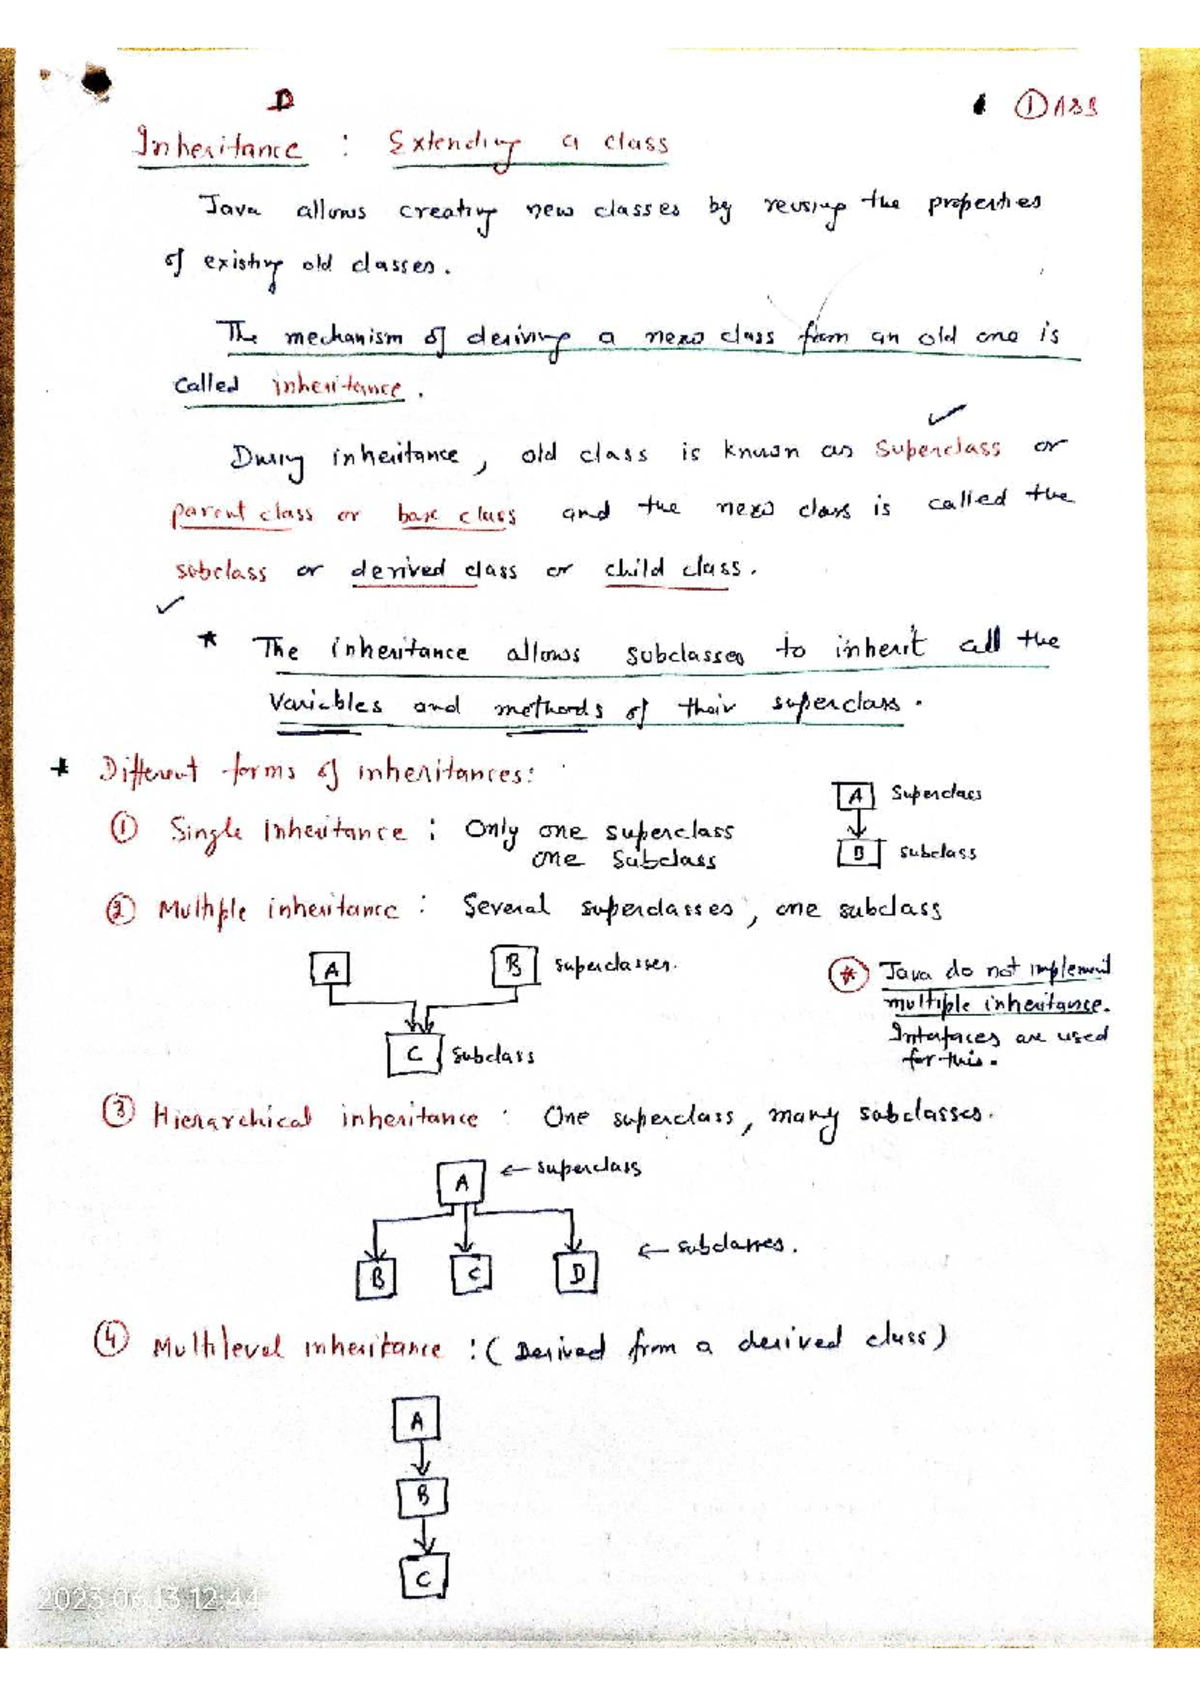 D
① ABS
Inheritance : Extending a class
Java allows creating new classes by reusing the properties
of existing old classes.
The mechanism of deriving a new class from an old one is
called inheritance.
During inheritance, old class is known as Superclass or
parent class or base class and the new class is called the
subclass or derived class or child class.
* The inheritance allows subclasses to inherit all the
variables and methods of their superclass.
* Different forms of inheritances:
① Single Inheritance : Only one superclass
one Subclass
A Superclass
B subclass
② Multiple inheritance : Several superclasses, one subclass
A B superclasses.
C Subclass
* Java do not implement
multiple inheritance.
Interfaces are used
for this.
③ Hierarchical inheritance : One superclass, many subclasses.
A ← superclass
B C D ← subclasses.
④ Multilevel inheritance : (Derived from a derived class)
A
B
C
2023.06.13 12:44